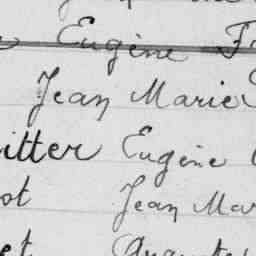 Eugène
Jean Marie
itter Eugène
ot Jean Mar
et Auguste